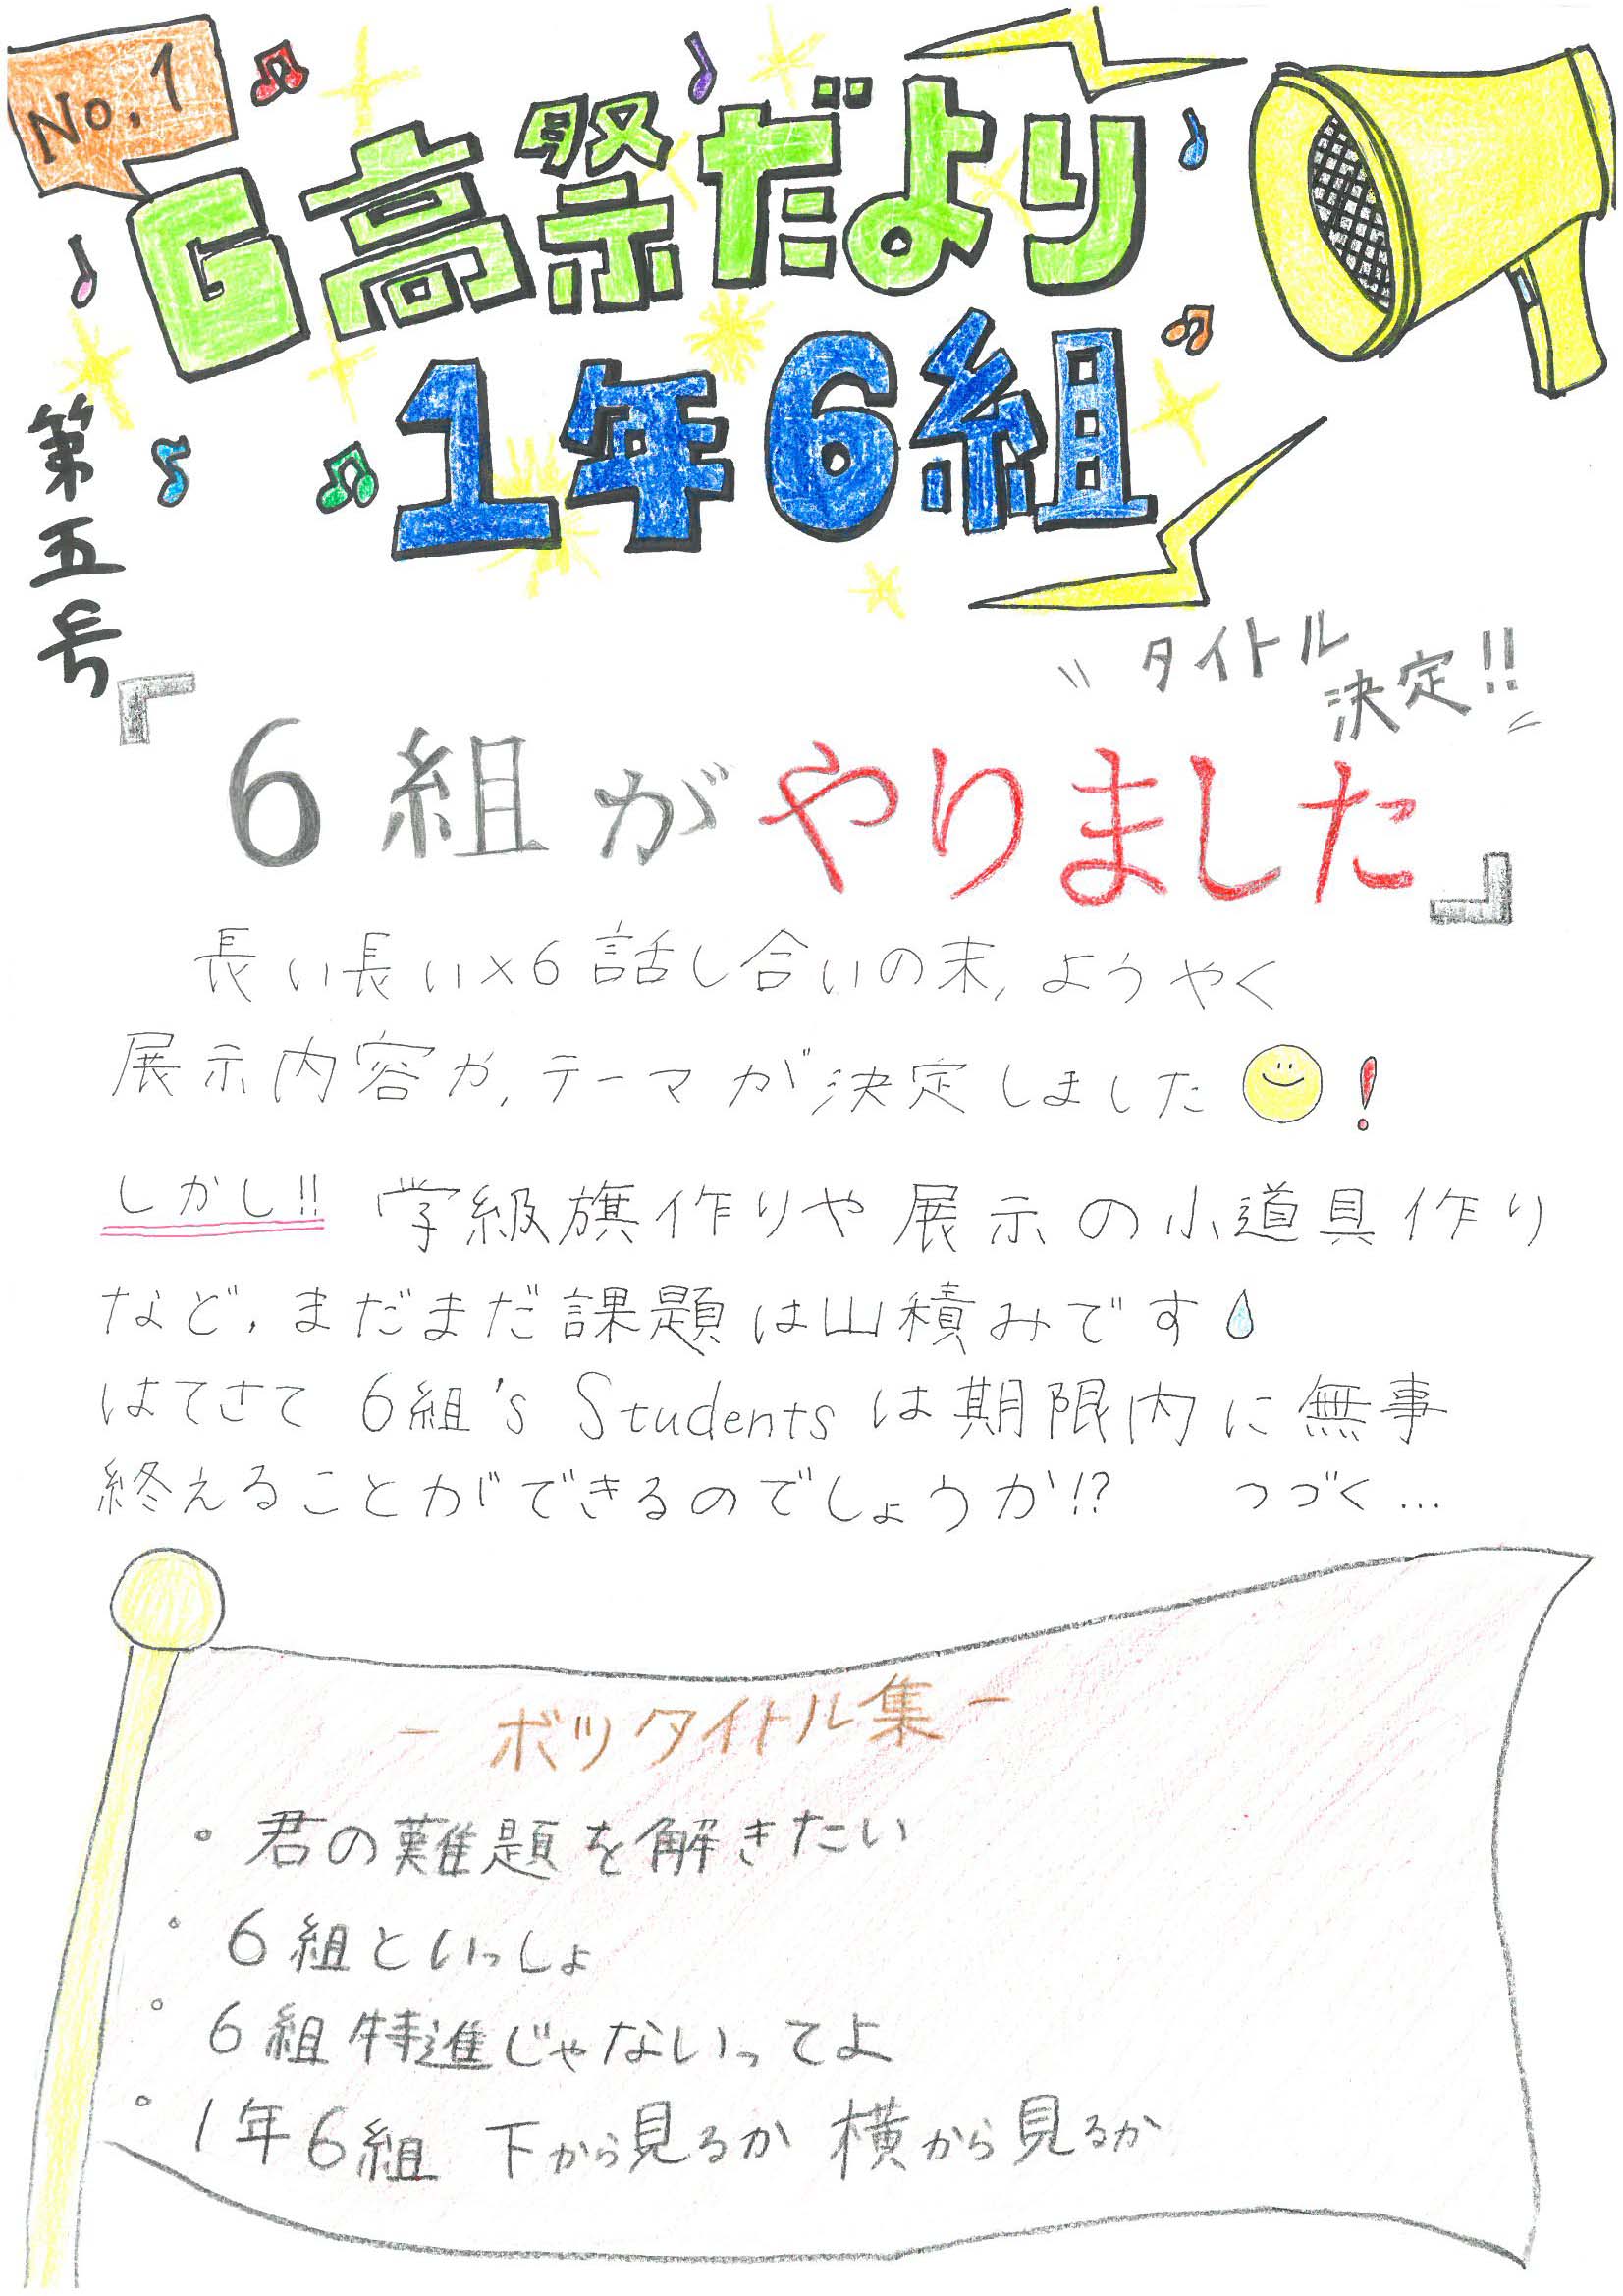 No.1
G高祭だより
1年6組
第五号
タイトル
決定!!
『6組がやりました』
長い長い×6話し合いの末,ようやく
展示内容や,テーマが決定しました!
しかし!! 学級旗作りや展示の小道具作り
など,まだまだ課題は山積みです
はてさて 6組's Students は期限内に無事
終えることができるのでしょうか!? つづく...
- ボツタイトル集 -
・君の難題を解きたい
・6組といっしょ
・6組特進じゃないってよ
・1年6組 下から見るか 横から見るか